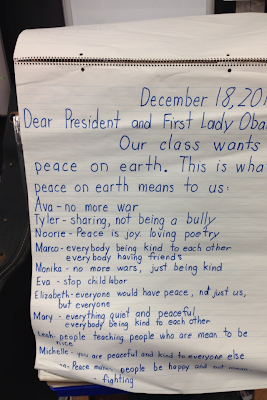 December 18, 201
Dear President and First Lady Oba
Our class wants
peace on earth. This is wha
peace on earth means to us:
Ava - no more war
Tyler - sharing, not being a bully
Noorie - Peace is joy. loving poetry
Marco - everybody being kind to each other
everybody having friends
Monika - no more wars, just being kind
Eva - stop child labor
Elizabeth - everyone would have peace, not just us,
but everyone
Mary - everything quiet and peaceful,
everybody being kind to each other
Leah - people teaching people who are mean to be
nice
Michelle - you are peaceful and kind to everyone else
Peace people be happy and not
- fighting